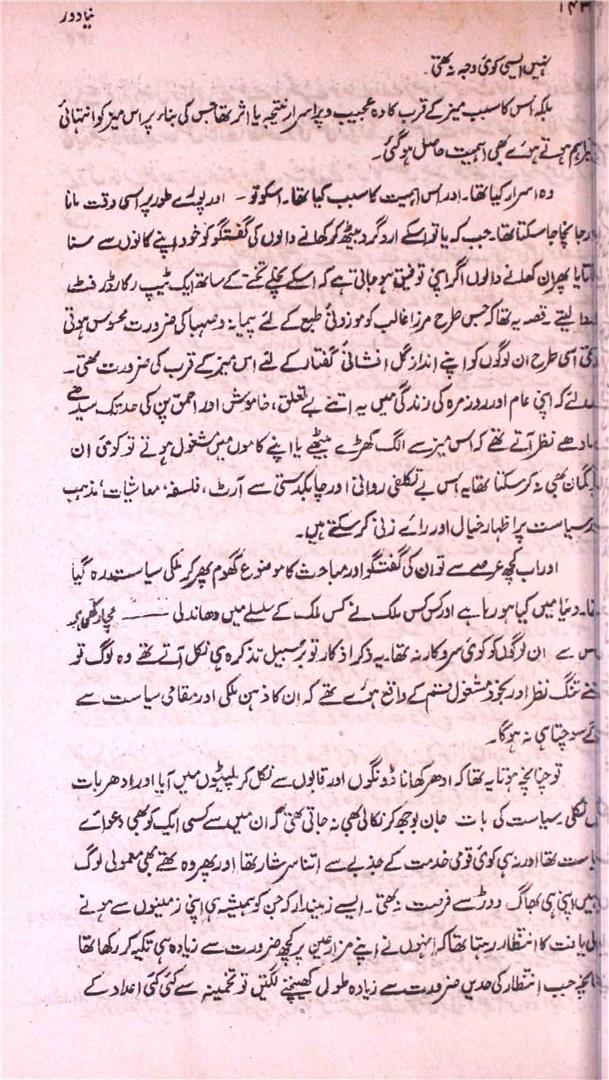 ۱۴۳
نیا دور
نہیں ایسی کوئی وجہ نہ تھی۔
بلکہ اُس کا سبب میز کے قرب کا وہ عجیب و پُراسرار نتیجہ یا اثر تھا جس کی بناء پر اس میز کو انتہائی
ہوتے ہوئے بھی اہمیت حاصل ہو گئی۔
وہ اسرار کیا تھا۔ اور اس اہمیت کا سبب کیا تھا۔ اسکو تو ۔ اور پورے طور پر اسی وقت مانا
جا سکتا تھا۔ جب کہ یا تو اسکے ارد گرد بیٹھ کر کھانے والوں کی گفتگو کو خود اپنے کانوں سے سنا
یا پھر ان کھانے والوں اگر اتنی توفیق ہو جاتی ہے کہ اسکے نچلے تختے کے ساتھ ایک ٹیپ رکارڈر فٹ
لیتے۔ قصہ یہ تھا کہ جس طرح مرزا غالب کو موزونیٔ طبع کے لئے پیمانہ و صہبا کی ضرورت محسوس ہوتی
اسی طرح ان لوگوں کو اپنے انداز گل افشانیٔ گفتار کے لئے اس میز کے قرب کی ضرورت تھی۔
کہ اپنی عام اور روز مرہ کی زندگی میں یہ اتنے بے تعلق، خاموش اور احمق پن کی حد تک سیدھے
سادھے نظر آتے تھے کہ اس میز سے الگ کھڑے بیٹھے یا اپنے کاموں میں مشغول ہوتے تو کوئی ان
گمان بھی نہ کر سکتا تھا یہ اس بے تکلفی روانی اور چابکدستی سے آرٹ، فلسفہ، معاشیات، مذہب
سیاست پر اظہار خیال اور رائے زنی کر سکتے ہیں۔
اور اب کچھ عرصے سے تو ان کی گفتگو اور مباحث کا موضوع گھوم پھر کر ملکی سیاست رہ گیا
تھا۔ دنیا میں کیا ہو رہا ہے اور کس کس ملک نے کس ملک کے سلسلے میں دھاندلی ——— مچا رکھی ہے
اس سے ان لوگوں کو کوئی سروکار نہ تھا۔ یہ ذکر اذکار تو برسبیل تذکرہ ہی نکل آتے تھے وہ لوگ تو
اتنے تنگ نظر اور مشغول قسم کے واقع ہوئے تھے کہ اِن کا ذہن ملکی اور مقامی سیاست سے
آگے سوچتا ہی نہ ہو گا۔
تو چنانچہ ہوتا یہ تھا کہ ادھر کھانا ڈونگوں اور قابوں سے نکل کر پلیٹوں میں آیا اور اِدھر بات
نکلی سیاست کی بات جان بوجھ کر نکالی بھی نہ جاتی تھی کہ ان میں سے کسی ایک کو بھی دعوائے
سیاست تھا اور نہ ہی کوئی قومی خدمت کے جذبے سے اتنا سرشار تھا اور پھر وہ تھے بھی معمولی لوگ
جنہیں اپنی ہی بھاگ دوڑ سے فرصت نہ تھی۔ ایسے زمیندار کہ جن کو ہمیشہ ہی اپنی زمینوں سے ہونے
والی یافت کا انتظار رہتا تھا کہ انہوں نے اپنے مزارعین پر کچھ ضرورت سے زیادہ ہی تکیہ کر رکھا تھا
چنانچہ جب انتظار کی حدیں ضرورت سے زیادہ طول کھینچنے لگتیں تو تخمینہ سے کئی کئی اعداد کے